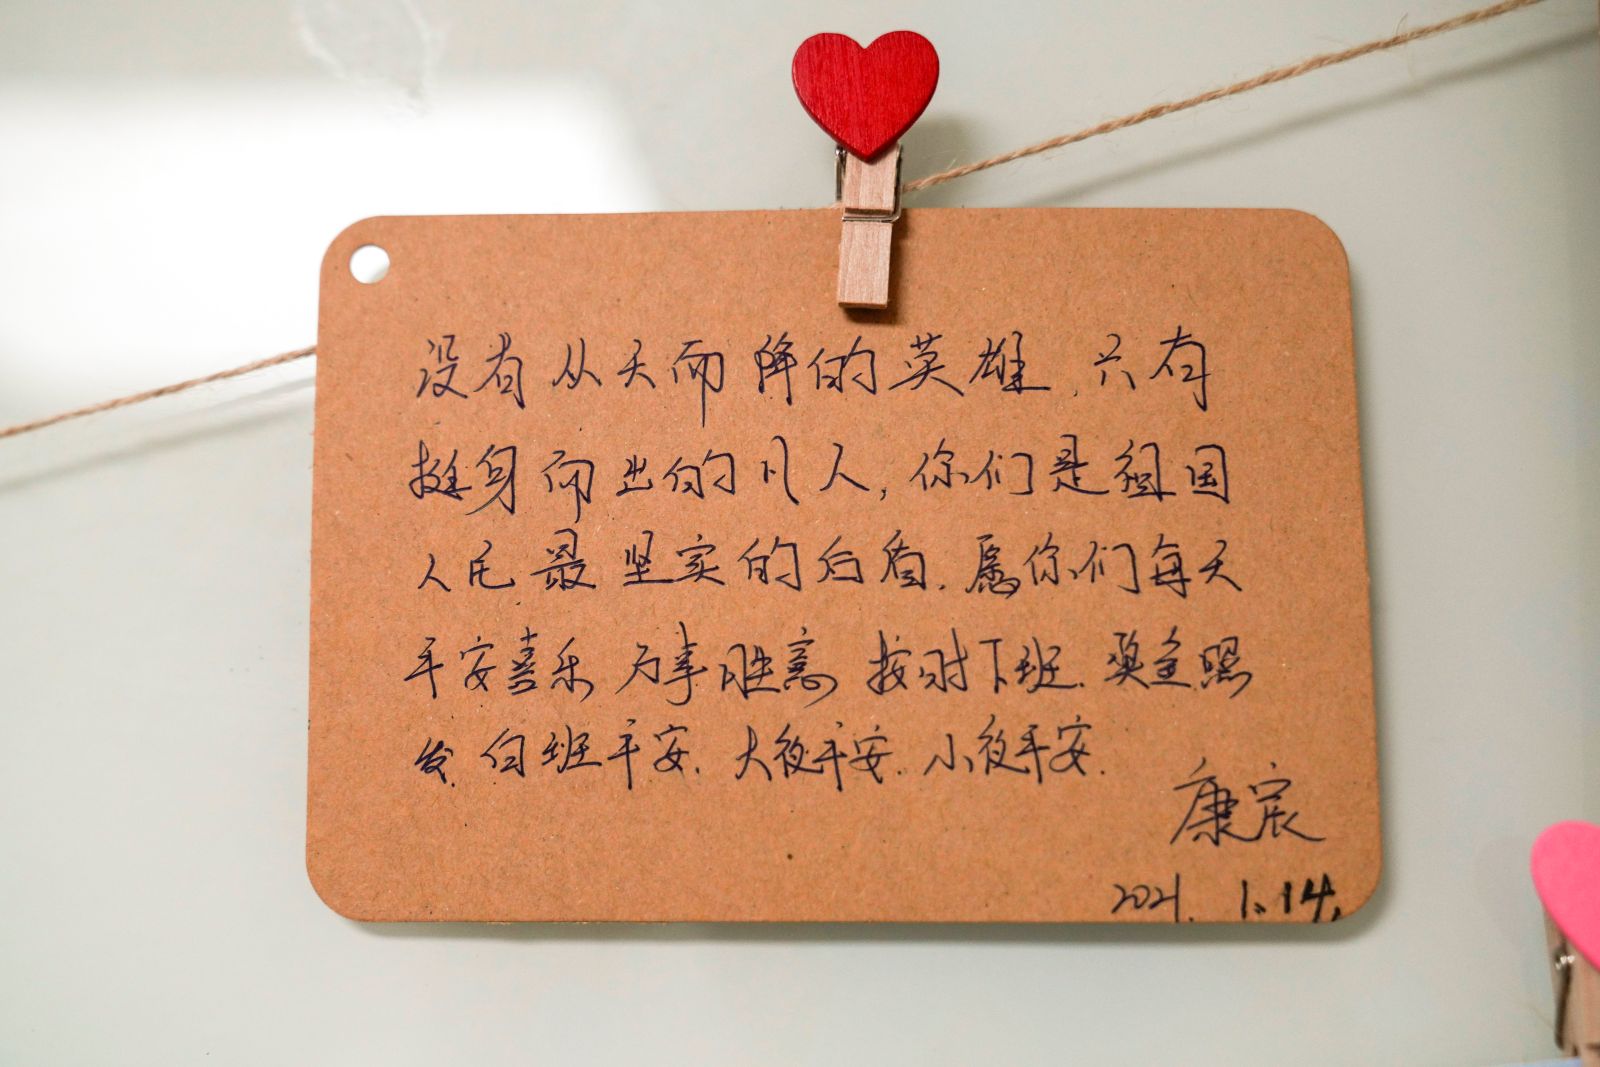 没有从天而降的英雄,只有
挺身而出的凡人,你们是祖国
人民最坚实的后盾.愿你们每天
平安喜乐 万事胜意 按时下班.奖金照
发.白班平安.大夜平安.小夜平安.
康宸
2021. 1.14.